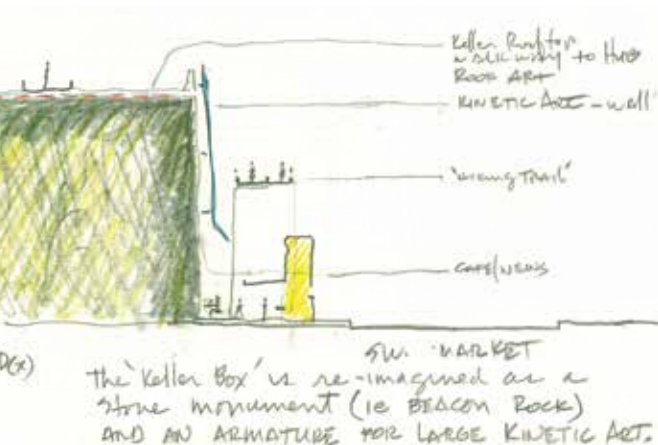 Keller Rooftop
walkway to HUB
ROOF ART
KINETIC ART - wall
TRAIL"
CAFE/NEWS
SW. MARKET
the 'Keller Box' is re-imagined as a
stone monument (ie BEACON ROCK)
AND AN ARMATURE FOR LARGE KINETIC ART.